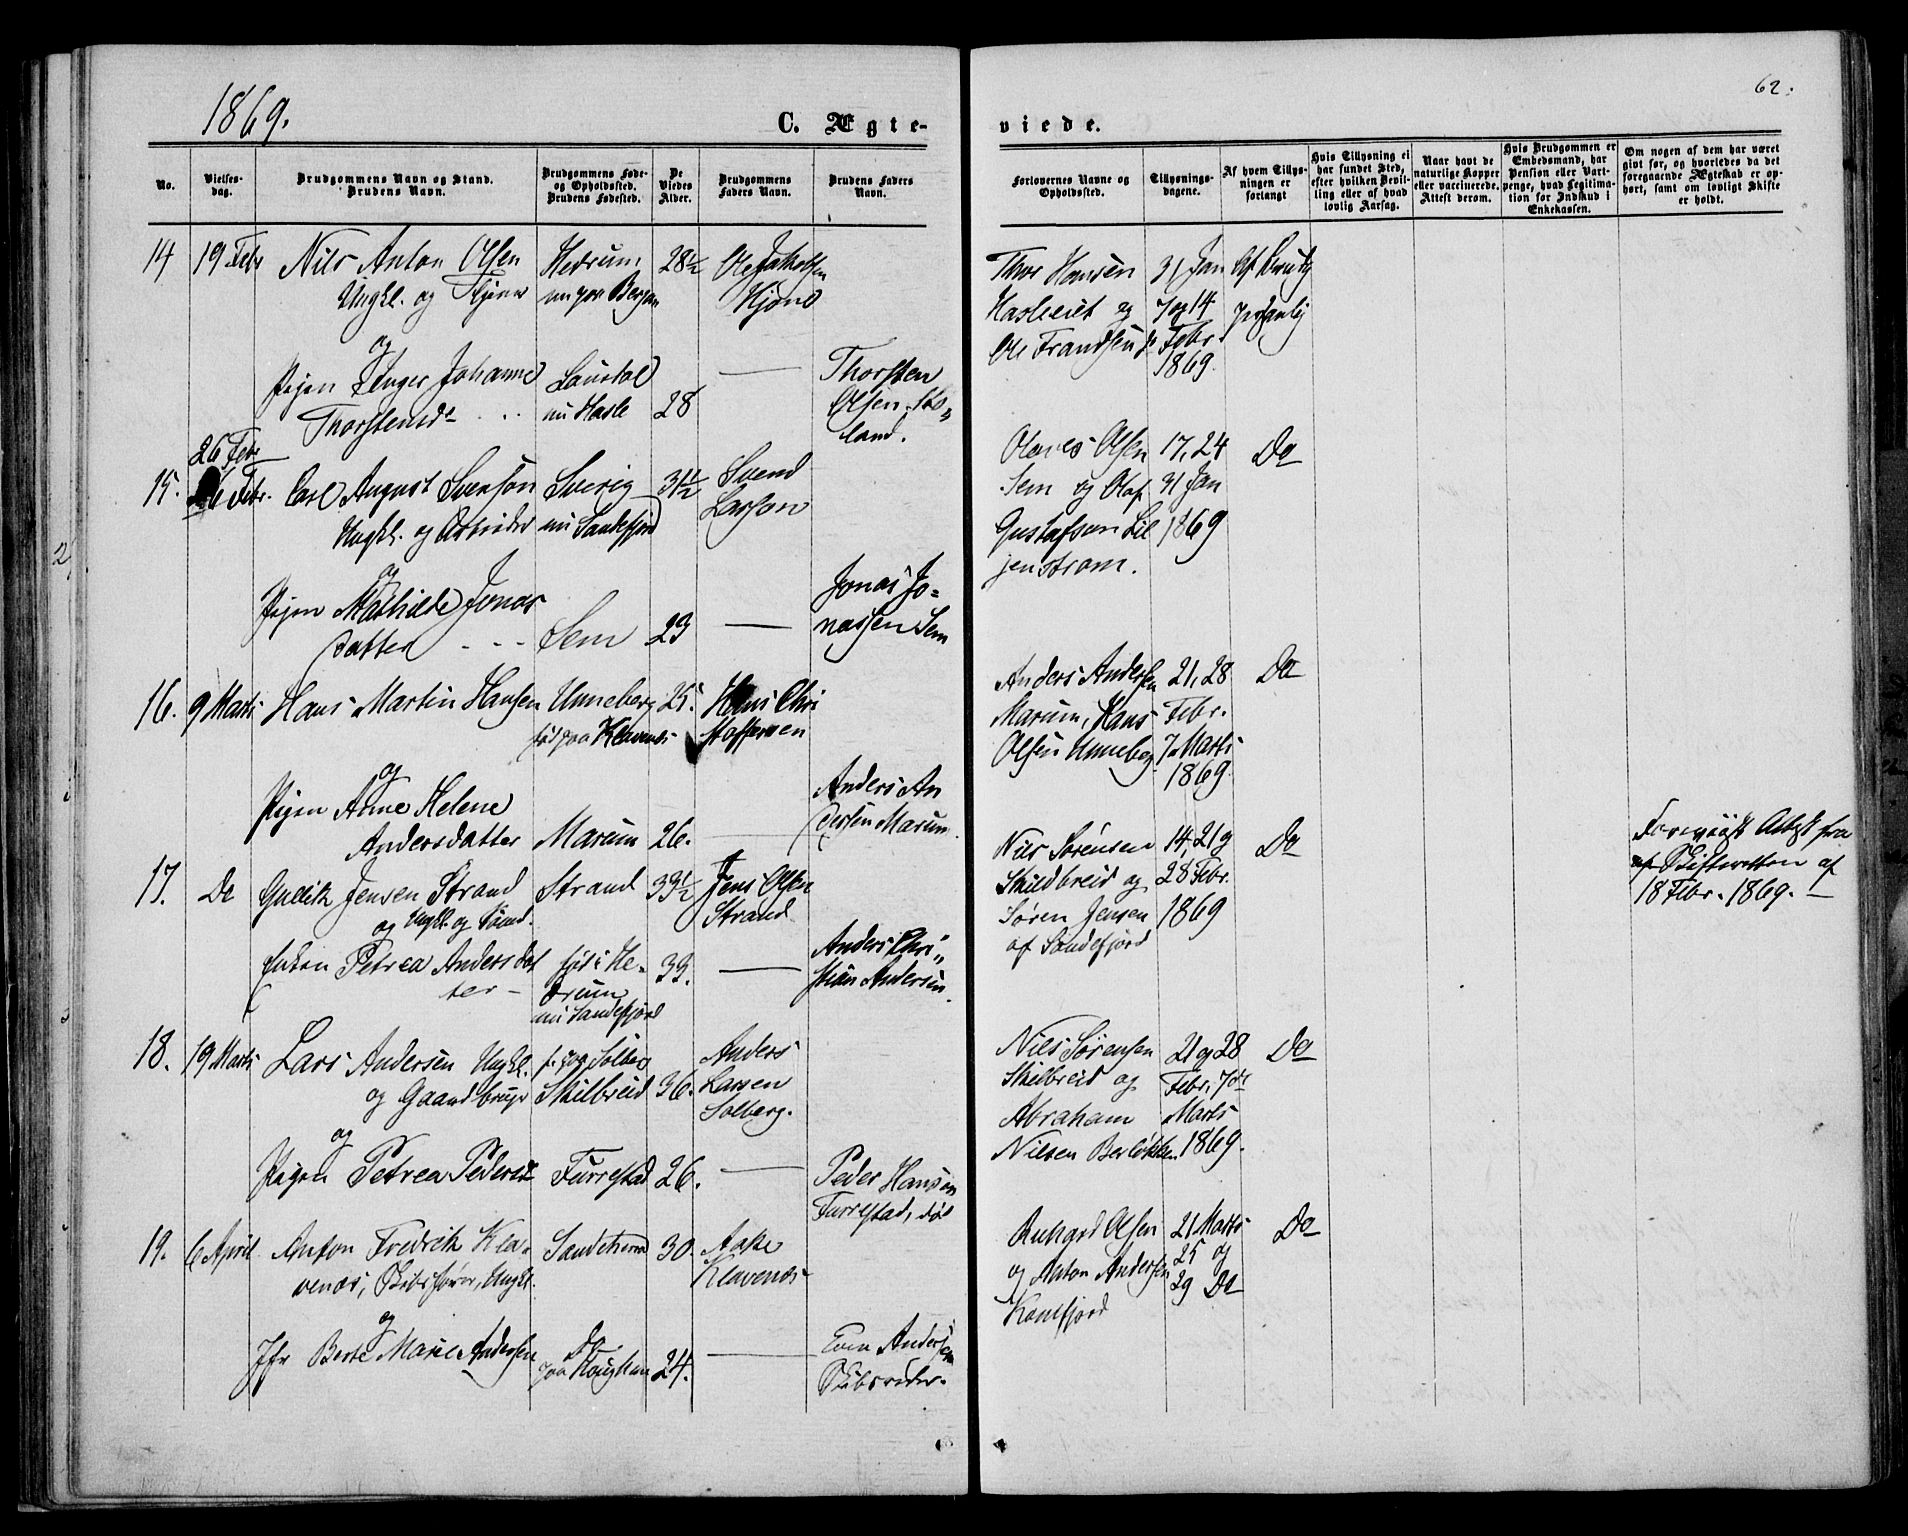 1869.
C. Ægte-
No.
Vielses-
dag.
Brudgommens Navn og Stand.
Brudens Navn.
Brudgommens Føde-
og Opholdssted.
Brudens Fødested.
De
Viedes
Alder.
Brudgommens
Faders Navn.
Brudens Faders
Navn.
14 19 Febr Nils Anton Olsen Hedrum 28½ Ole Jakobsen
Ungkl. og Tjener nu paa Bergan Hjøno
og
Pigen Inger Johanne Laurdal — Thorsten
Thorstensd. nu Hasle 28 Olsen
land.
26 Febr
15. Febr. Carl August Svenson Sverig 31½ Svend
Ungkl. og Arbeider nu Sandefjord Larsson
og
Pigen Mathilde Jonas Jonas Jo-
datter Sem 23 — nassen Sem
16. 9 Marts Hans Martin Hansen Unneberg 25. Hans Chri
født paa Klavenæs stoffersen
og
Pigen Anne Helene Anders An
Andersdatter Marum 26. dersen Marum.
17. Do Gullik Jensen Strand Strand 33½ Jens Olsen
og Ungkl. og Sømd. Strand
Enken Petrea Andersdat født i He- 33. — Anders Chri„
ter - drum stian Andersen.
nu Sandefjord
18. 19 Marts Lars Andersen Ungkl. f. paa Solberg Anders
og Gaardbruger Skilbreid 36. Larsen
Solberg.
og
Pigen Petrea Pedersd. Furrestad 26. — Peder Hansen
Furrestad, død
19. 6 April Anton Fredrik Kla- Sandeherred 30. Aake
venæs, Skibsfører, Ungkl. Klavenæs
og
Jfr Berte Marie Andersen Do — Even Andersen
paa Haughem 24. Skibsreder.
62.
viede.
Forlovernes Navne og
Opholdssted.
Tillysnings-
dagene.
Af hvem Tillys-
ningen er
forlangt
Hvis Tillysning ei
har fundet Sted,
efter hvilken Bevil-
ling eller af hvad
lovlig Aarsag.
Naar havt de
naturlige Kopper
eller vaccinerede.
Attest derom.
Hvis Brudgommen er
Embedsmand, har
Pension eller Vart-
penge, hvad Legitima-
tion for Indskud i
Enkekassen.
Om nogen af dem har været
givt før, og hvorledes da det
foregaaende Ægteskab er op-
hørt, samt om lovligt Skifte
er holdt.
Thor Hansen 31 Jan Af Brudg
Hasleeiet og 7 og 14
Ole Frandsen Febr.
1869.
Olaves Olsen 17, 24 Do
Sem og Olaf 31 Jan
Gustafson Lil 1869
jenstrøm.
Anders Andersen 21, 28 Do
Marum, Hans Febr.
Olsen Unneberg 7 Marts
1869.
Nils Sørensen 14, 21 og Do
Skildbreid og 28 Febr.
Søren Jensen 1869
af Sandefjord
Forevist Attest fra
Skifteretten af
18 Febr. 1869. —
Nils Sørensen 21 og 28 Do
Skilbreid og Febr. 7de
Abraham Marts
Nilsen Berløkken 1869.
Olsen 21 Marts Do
og Anton Andersen 25 og
29 Do